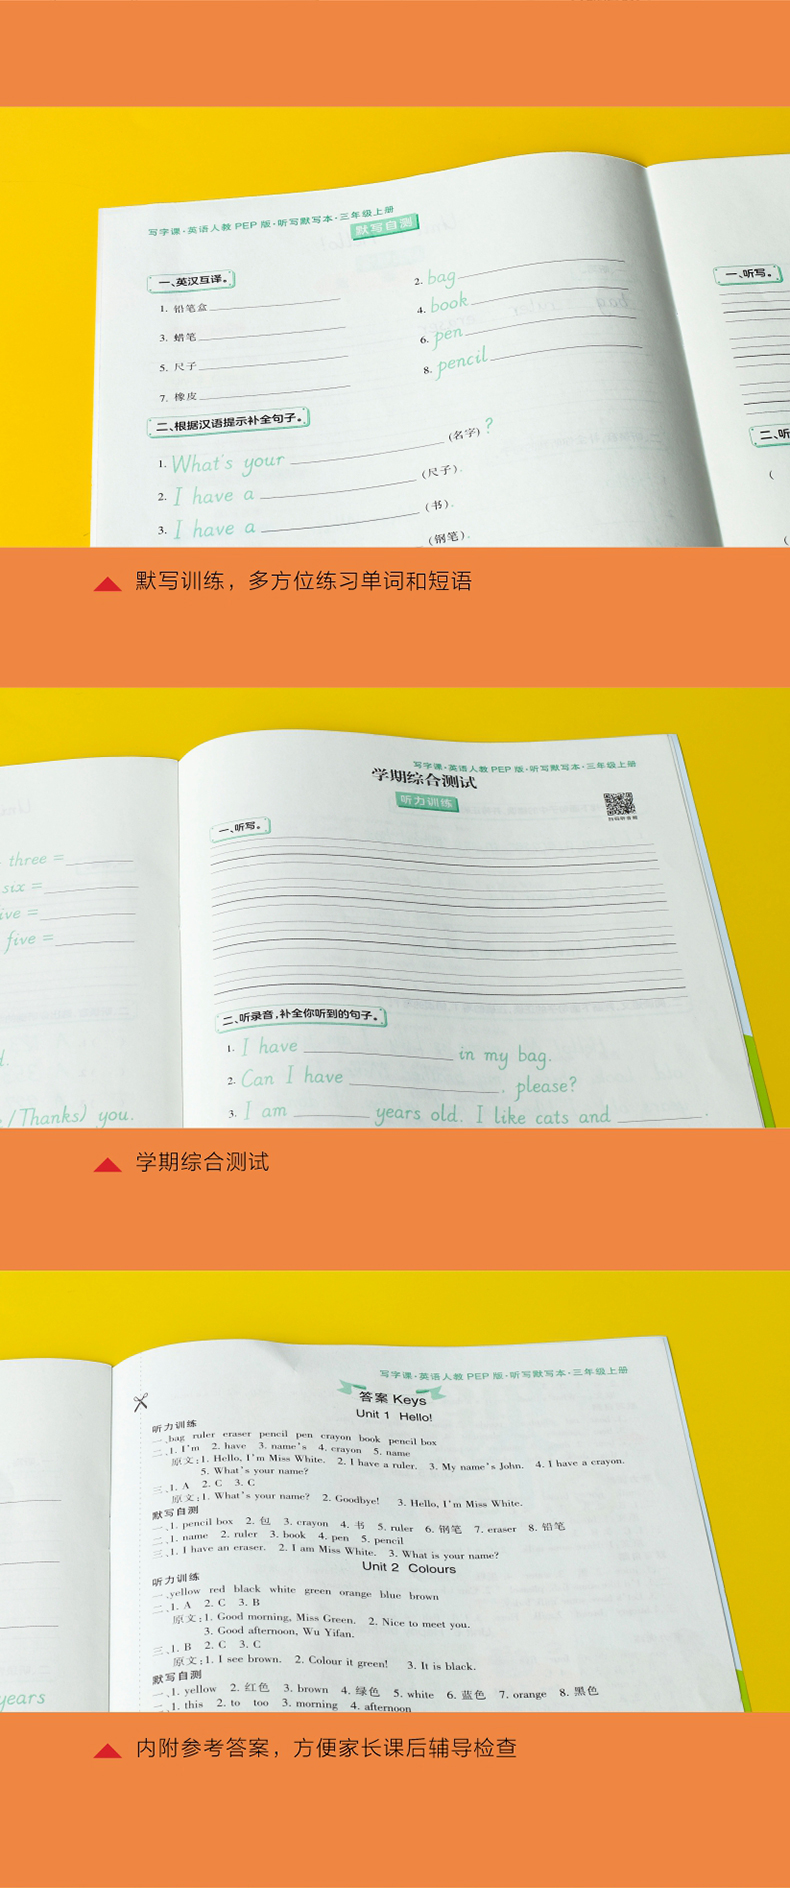 写字课·英语人教 PEP 版·听写默写本·三年级上册
默写自测
一、英汉互译。
1. 铅笔盒
2. bag
3. 蜡笔
4. book
5. 尺子
6. pen
7. 橡皮
8. pencil
二、根据汉语提示补全句子。
1. What's your (名字) ?
2. I have a (尺子).
3. I have a (书).
(钢笔).
一、听写。
二、听
(
(
默写训练，多方位练习单词和短语
写字课·英语人教 PEP 版·听写默写本·三年级上册
学期综合测试
听力训练
一、听写。
three =
six =
ive =
five =
二、听录音，补全你听到的句子。
1. I have in my bag.
2. Can I have , please?
3. I am years old. I like cats and .
/Thanks) you.
学期综合测试
写字课·英语人教 PEP 版·听写默写本·三年级上册
答案 Keys
Unit 1 Hello!
听力训练
一、bag ruler eraser pencil pen crayon book pencil box
二、1. I'm 2. have 3. name's 4. crayon 5. name
原文：1. Hello, I'm Miss White. 2. I have a ruler. 3. My name's John. 4. I have a crayon.
5. What's your name?
三、1. A 2. C 3. C
原文：1. What's your name? 2. Goodbye! 3. Hello, I'm Miss White.
默写自测
一、1. pencil box 2. 包 3. crayon 4. 书 5. ruler 6. 钢笔 7. eraser 8. 铅笔
二、1. name 2. ruler 3. book 4. pen 5. pencil
三、1. I have an eraser. 2. I am Miss White. 3. What is your name?
Unit 2 Colours
听力训练
一、yellow red black white green orange blue brown
二、1. A 2. C 3. B
原文：1. Good morning, Miss Green. 2. Nice to meet you.
3. Good afternoon, Wu Yifan.
三、1. B 2. C 3. C
原文：1. I see brown. 2. Colour it green! 3. It is black.
默写自测
一、1. yellow 2. 红色 3. brown 4. 绿色 5. white 6. 蓝色 7. orange 8. 黑色
二、1. this 2. to too 3. morning 4. afternoon
years
内附参考答案，方便家长课后辅导检查